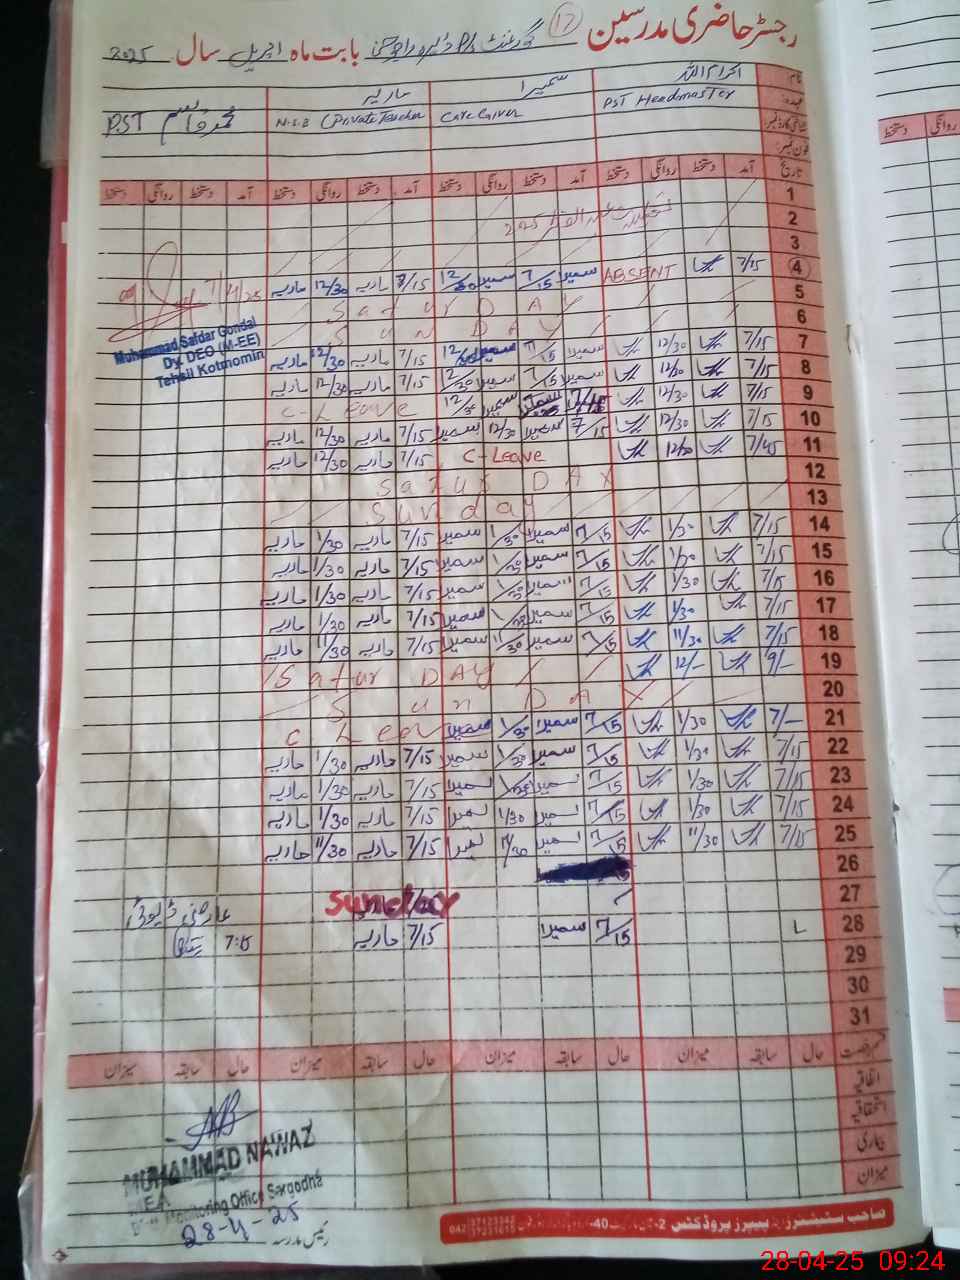 رجسٹر حاضری مدرسین 12 گورنمنٹ P/S بابت ماہ اپریل سال 2025
نام اکرام اللہ سمیرا ماریہ محمد قاسم
عہدہ PST Headmaster Care Giver N.S.B (Private Teacher PST
شناختی کارڈ نمبر
فون نمبر
تاریخ آمد دستخط روانگی دستخط آمد دستخط روانگی دستخط آمد دستخط روانگی دستخط آمد دستخط روانگی دستخط
1
2 2025
3
4 7/15 ABSENT سمیرا 7/15 سمیرا 12/30 8/15 ماریہ 12/30 ماریہ
7/4/25
5 Satur DAY
6 Sun DAY
Muhammad Safdar Gondal
Dy. DEO (M-EE)
Tehsil Kotmomin
7 7/15 12/30 سمیرا 7/15 سمیرا 12/30 7/15 ماریہ 12/30 ماریہ
8 7/15 12/30 سمیرا 7/15 سمیرا 12/30 7/15 ماریہ 12/30 ماریہ
9 7/15 12/30 7/15 سمیرا سمیرا 12/30 C-Leave
10 7/15 12/30 7/15 سمیرا 12/30 سمیرا 7/15 ماریہ 12/30 ماریہ
11 7/45 12/30 C-Leave 7/15 ماریہ 12/30 ماریہ
12 Satur DAY
13 Sunday
14 7/15 1/30 7/15 سمیرا 1/30 سمیرا 7/15 ماریہ 1/30 ماریہ
15 7/15 1/30 7/15 سمیرا 1/30 سمیرا 7/15 ماریہ 1/30 ماریہ
16 7/15 1/30 7/15 سمیرا 1/30 سمیرا 7/15 ماریہ 1/30 ماریہ
17 7/15 1/30 7/15 سمیرا 1/30 سمیرا 7/15 ماریہ 1/30 ماریہ
18 7/15 11/30 7/15 سمیرا 11/30 سمیرا 7/15 ماریہ 11/30 ماریہ
19 9/- 12/- Satur DAY
20 Sun DAY
21 7/- 1/30 7/15 سمیرا 1/30 سمیرا C Leav
22 7/15 1/30 7/15 سمیرا 1/30 سمیرا 7/15 ماریہ 1/30 ماریہ
23 7/15 1/30 7/15 سمیرا 1/30 سمیرا 7/15 ماریہ 1/30 ماریہ
24 7/15 1/30 7/15 سمیرا 1/30 سمیرا 7/15 ماریہ 1/30 ماریہ
25 7/15 11/30 7/15 سمیرا 11/30 سمیرا 7/15 ماریہ 11/30 ماریہ
26
27 Sunday عارضی ڈیوٹی
28 L 7/15 سمیرا 7/15 ماریہ 7:15
29
30
31
قسم رخصت حال سابقہ میزان حال سابقہ میزان حال سابقہ میزان حال سابقہ میزان
اتفاقیہ
استحقاقیہ
بیماری
میزان
MUHAMMAD NAWAZ
MEA
Monitoring Office Sargodha
28-4-25 رئیس مدرسہ
صاحب سٹیشنرز اینڈ پیپرز پروڈکٹس
28-04-25 09:24
روانگی دستخط